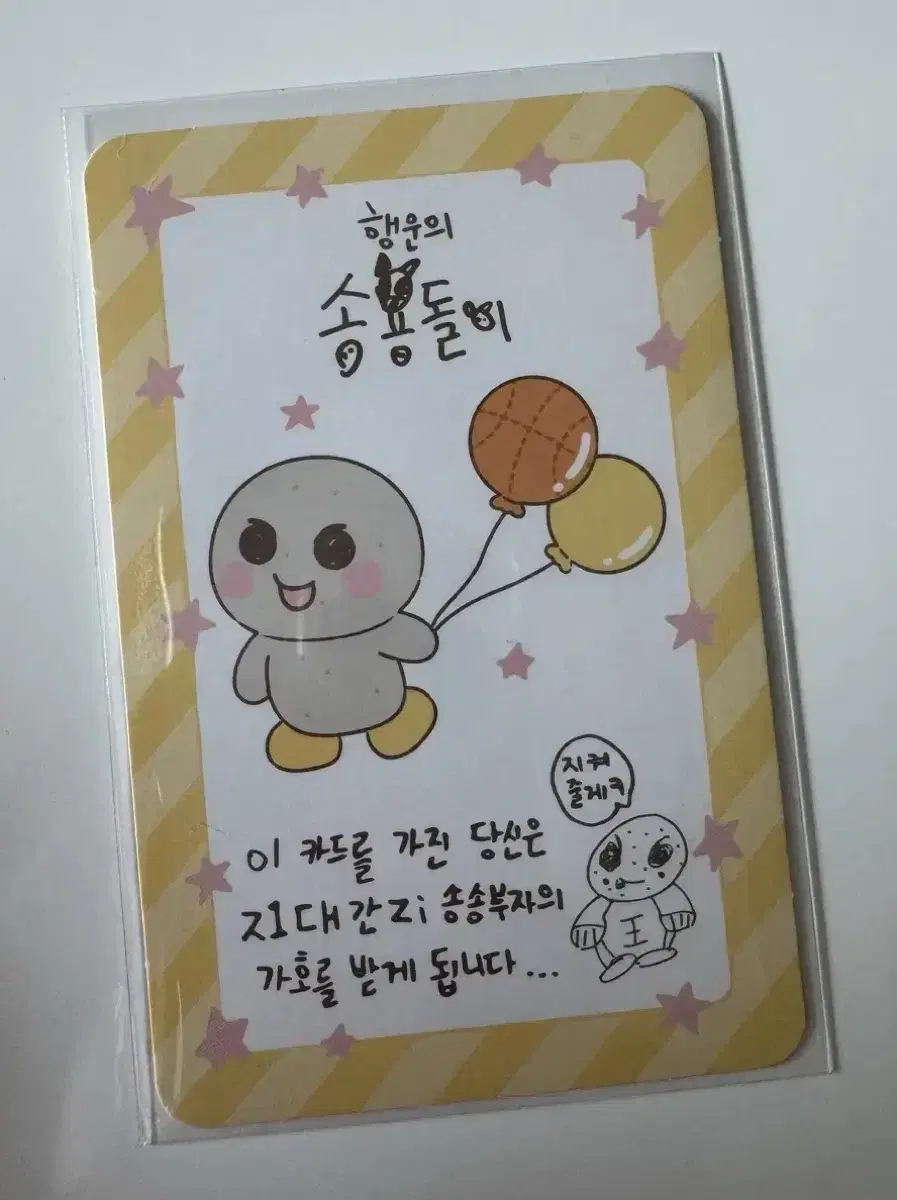 행운의
송용돌이
지켜
줄게ㅋ
이 카드를 가진 당신은
지1대간zi 송송부자의
가호를 받게 됩니다...
王